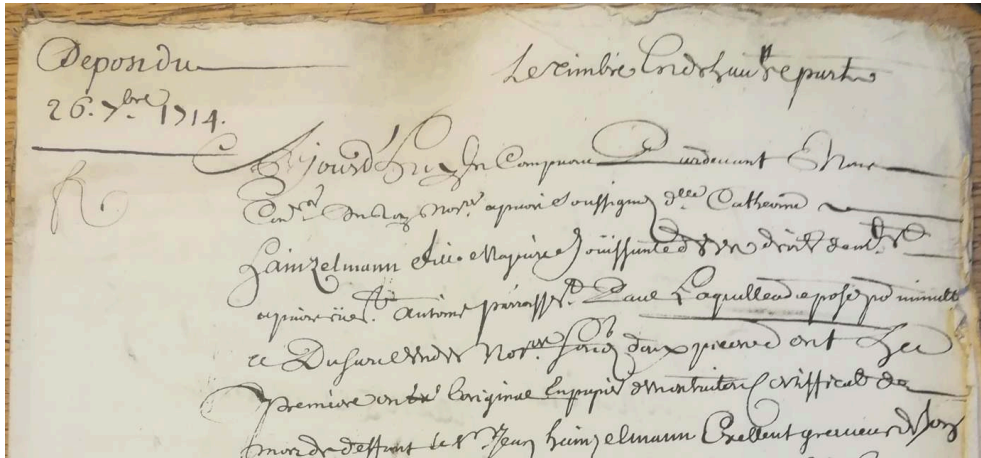 Deposi du
26. 7bre 1714.
Le timbre
Aujourd'huy Est Comparu Pardevant Nous
Coners du Roy Norres a paris soussignez dlle Catherine
hainzelmann fille Majeure Jouissante de ses droits demte
a paris rüe St. Antoine parroisse St. Paul Laquelle a deposé pr minutte
a Norre deux pieces dont La
premiere est l'original en papier Certifficat de
mort de deffunt le Sr. Jean hainzelmann Exellent graveur du Roy